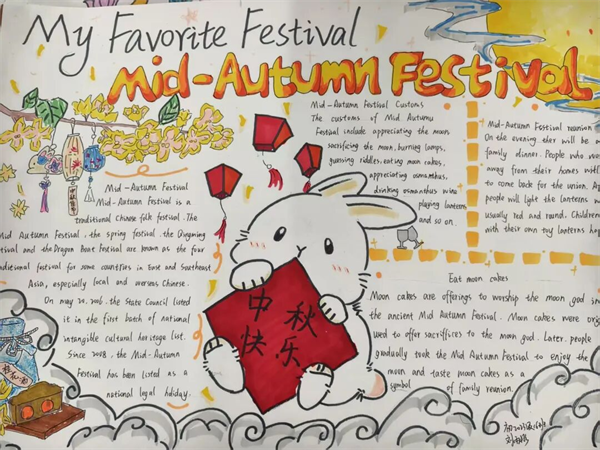 My Favorite Festival
Mid-Autumn Festival
Mid-Autumn Festival
Mid-Autumn Festival is a
traditional Chinese folk festival. The
Mid Autumn Festival, the spring festival, the Qingming
tival and the Dragon Boat Festival are known as the four
aditional festival for some countries in East and Southeast
Asia, especially local and overseas Chinese.
On may 20, 2006, the State Council listed
it in the first batch of national
intangible cultural heritage list.
Since 2008, the Mid-Autumn
Festival has been listed as a
national legal holiday.
Mid-Autumn Festival Customs
The customs of Mid Autumn
Festival include appreciating the moon,
sacrificing the moon, burning lamps,
guessing riddles, eating moon cakes,
appreciating osmanthus,
drinking osmanthus wine
playing lantern
and so on.
Mid-Autumn Festival reunion
On the evening there will be a
family dinner. People who
away from their homes will
to come back for the union.
people will light the lanterns
usually red and round. Children
with their own toy lanterns
Eat moon cakes
Moon cakes are offerings to worship the moon god in
the ancient Mid Autumn Festival. Moon cakes were orig
used to offer sacrifices to the moon god. Later, people
gradually took the Mid Autumn Festival to enjoy the
moon and taste moon cakes as a
symbol of family reunion.
中秋
快乐